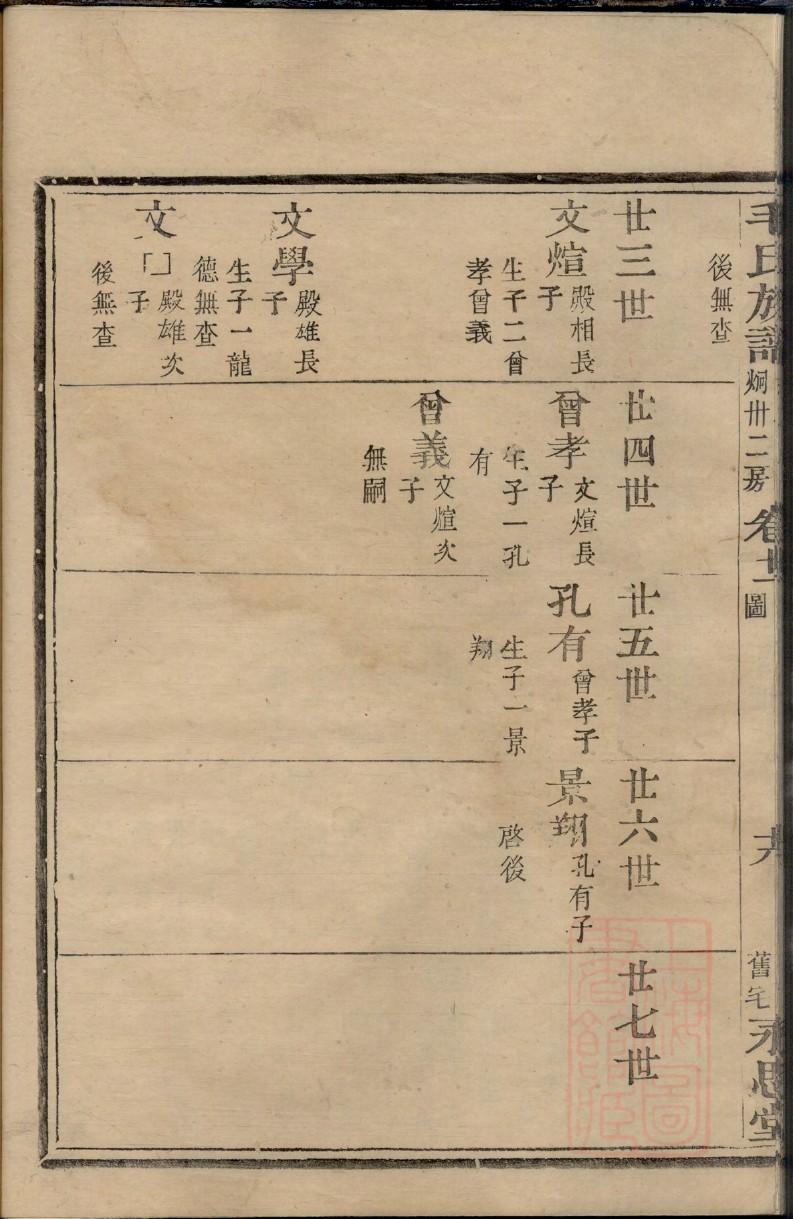 毛氏族譜 烱卅二房 卷廿 圖
舊宅永思堂
後無查
廿三世
文煊 殿相長子
生子二曾
孝曾義
文學 殿雄長子
生子一龍
德無查
文 殿雄次子
後無查
廿四世
曾孝 文煊長子
生子一孔
有
曾義 文煊次子
無嗣
廿五世
孔有 曾孝子
生子一景
翔
廿六世
景翔 孔有子
啓後
廿七世
上海圖
書館藏